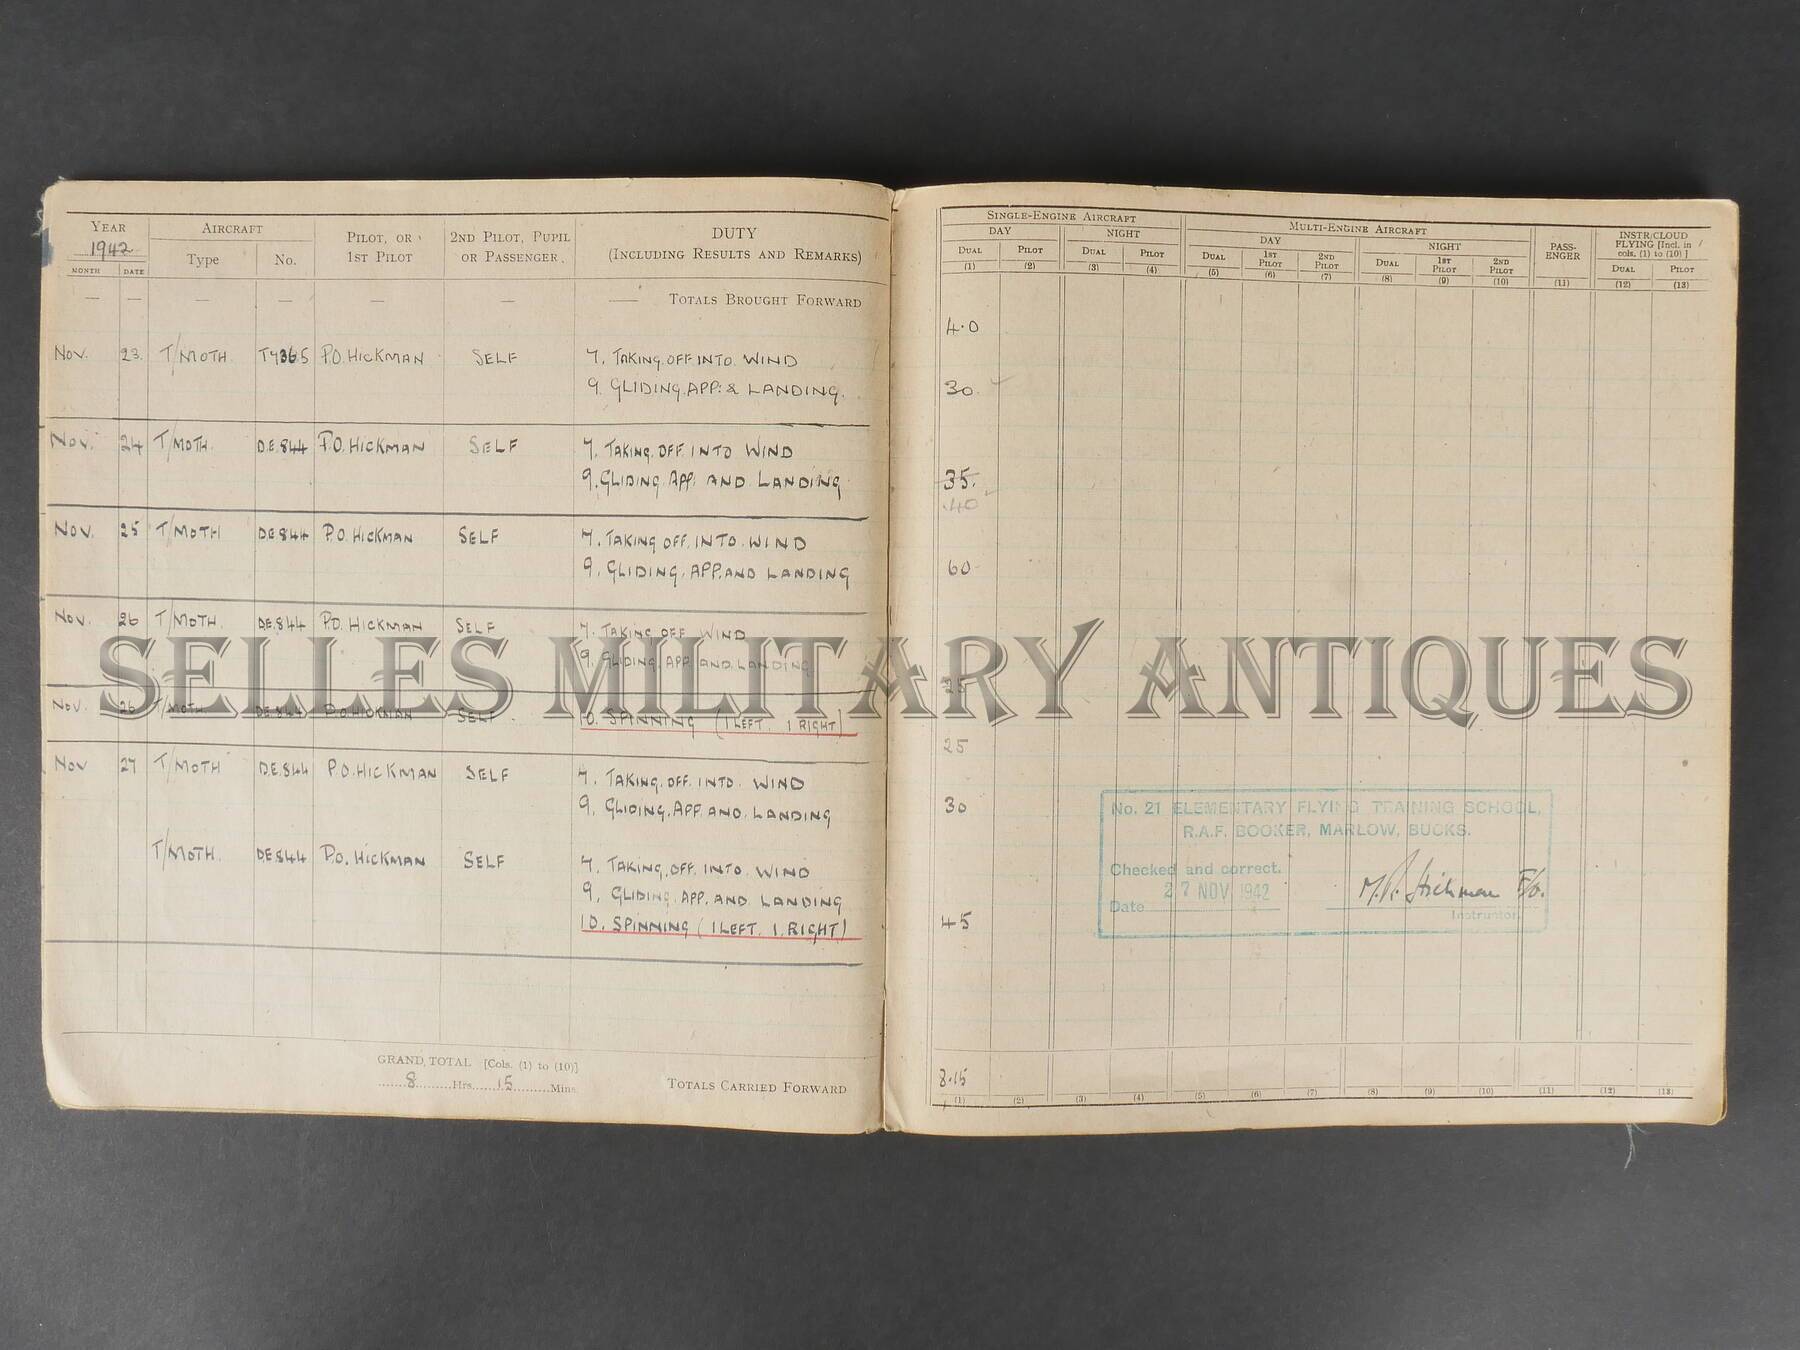 YEAR AIRCRAFT PILOT, OR 1ST PILOT 2ND PILOT, PUPIL OR PASSENGER. DUTY (INCLUDING RESULTS AND REMARKS)
1942
MONTH DATE Type No.
— — — — — — —— TOTALS BROUGHT FORWARD
NOV. 23. T/MOTH. T7365 P.O. HICKMAN SELF 7. TAKING OFF INTO WIND
9. GLIDING. APP: & LANDING.
NOV. 24 T/MOTH. D.E.844 P.O. HICKMAN SELF 7. TAKING. OFF. INTO WIND
9. GLIDING. APP: AND LANDING
NOV. 25 T/MOTH DE844 P.O. HICKMAN SELF 7. TAKING OFF. INTO. WIND
9. GLIDING. APP. AND LANDING
NOV. 26 T/MOTH. DE.844 P.O. HICKMAN SELF 7. TAKING OFF WIND
9. GLIDING. APP. AND. LANDING
NOV. 26 T/MOTH. DE.844 P.O. HICKMAN SELF. 10. SPINNING (1 LEFT. 1 RIGHT)
NOV 27 T/MOTH D.E.844 P.O. HICKMAN SELF 7. TAKING. OFF. INTO. WIND
9. GLIDING. APP. AND. LANDING
T/MOTH. DE844 P.O. HICKMAN SELF 7. TAKING. OFF. INTO. WIND
9. GLIDING. APP. AND LANDING
10. SPINNING (1 LEFT. 1. RIGHT)
GRAND TOTAL [Cols. (1) to (10)]
8 Hrs. 15 Mins. TOTALS CARRIED FORWARD
SINGLE-ENGINE AIRCRAFT MULTI-ENGINE AIRCRAFT PASS-ENGER INSTR/CLOUD FLYING [Incl. in cols. (1) to (10)]
DAY NIGHT DAY NIGHT
DUAL PILOT DUAL PILOT DUAL 1ST PILOT 2ND PILOT DUAL 1ST PILOT 2ND PILOT DUAL PILOT
(1) (2) (3) (4) (5) (6) (7) (8) (9) (10) (11) (12) (13)
40
30
35.
.40
60
25
30
45
No. 21 ELEMENTARY FLYING TRAINING SCHOOL,
R.A.F. BOOKER, MARLOW, BUCKS.
Checked and correct.
Date 27 NOV 1942 Hickman F/O.
Instructor.
8.15
(1) (2) (3) (4) (5) (6) (7) (8) (9) (10) (11) (12) (13)
SELLES MILITARY ANTIQUES